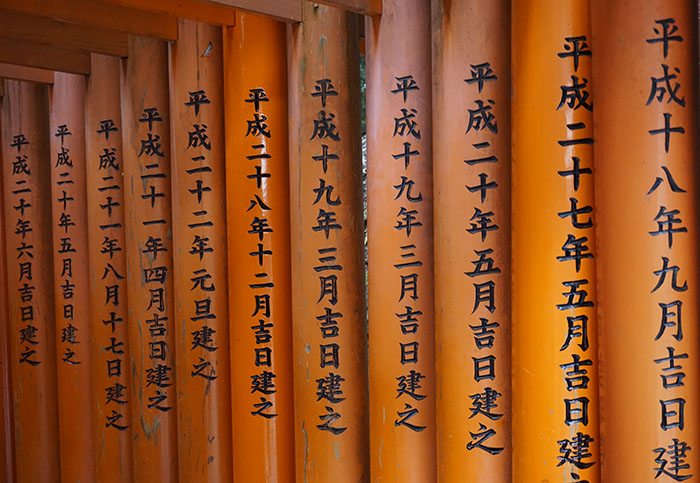 平成十八年九月吉日建之
平成二十七年五月吉日建之
平成二十年五月吉日建之
平成十九年三月吉日建之
平成十九年三月吉日建之
平成二十八年十二月吉日建之
平成二十二年元旦建之
平成二十一年四月吉日建之
平成二十一年八月十七日建之
平成二十年五月吉日建之
平成二十年六月吉日建之